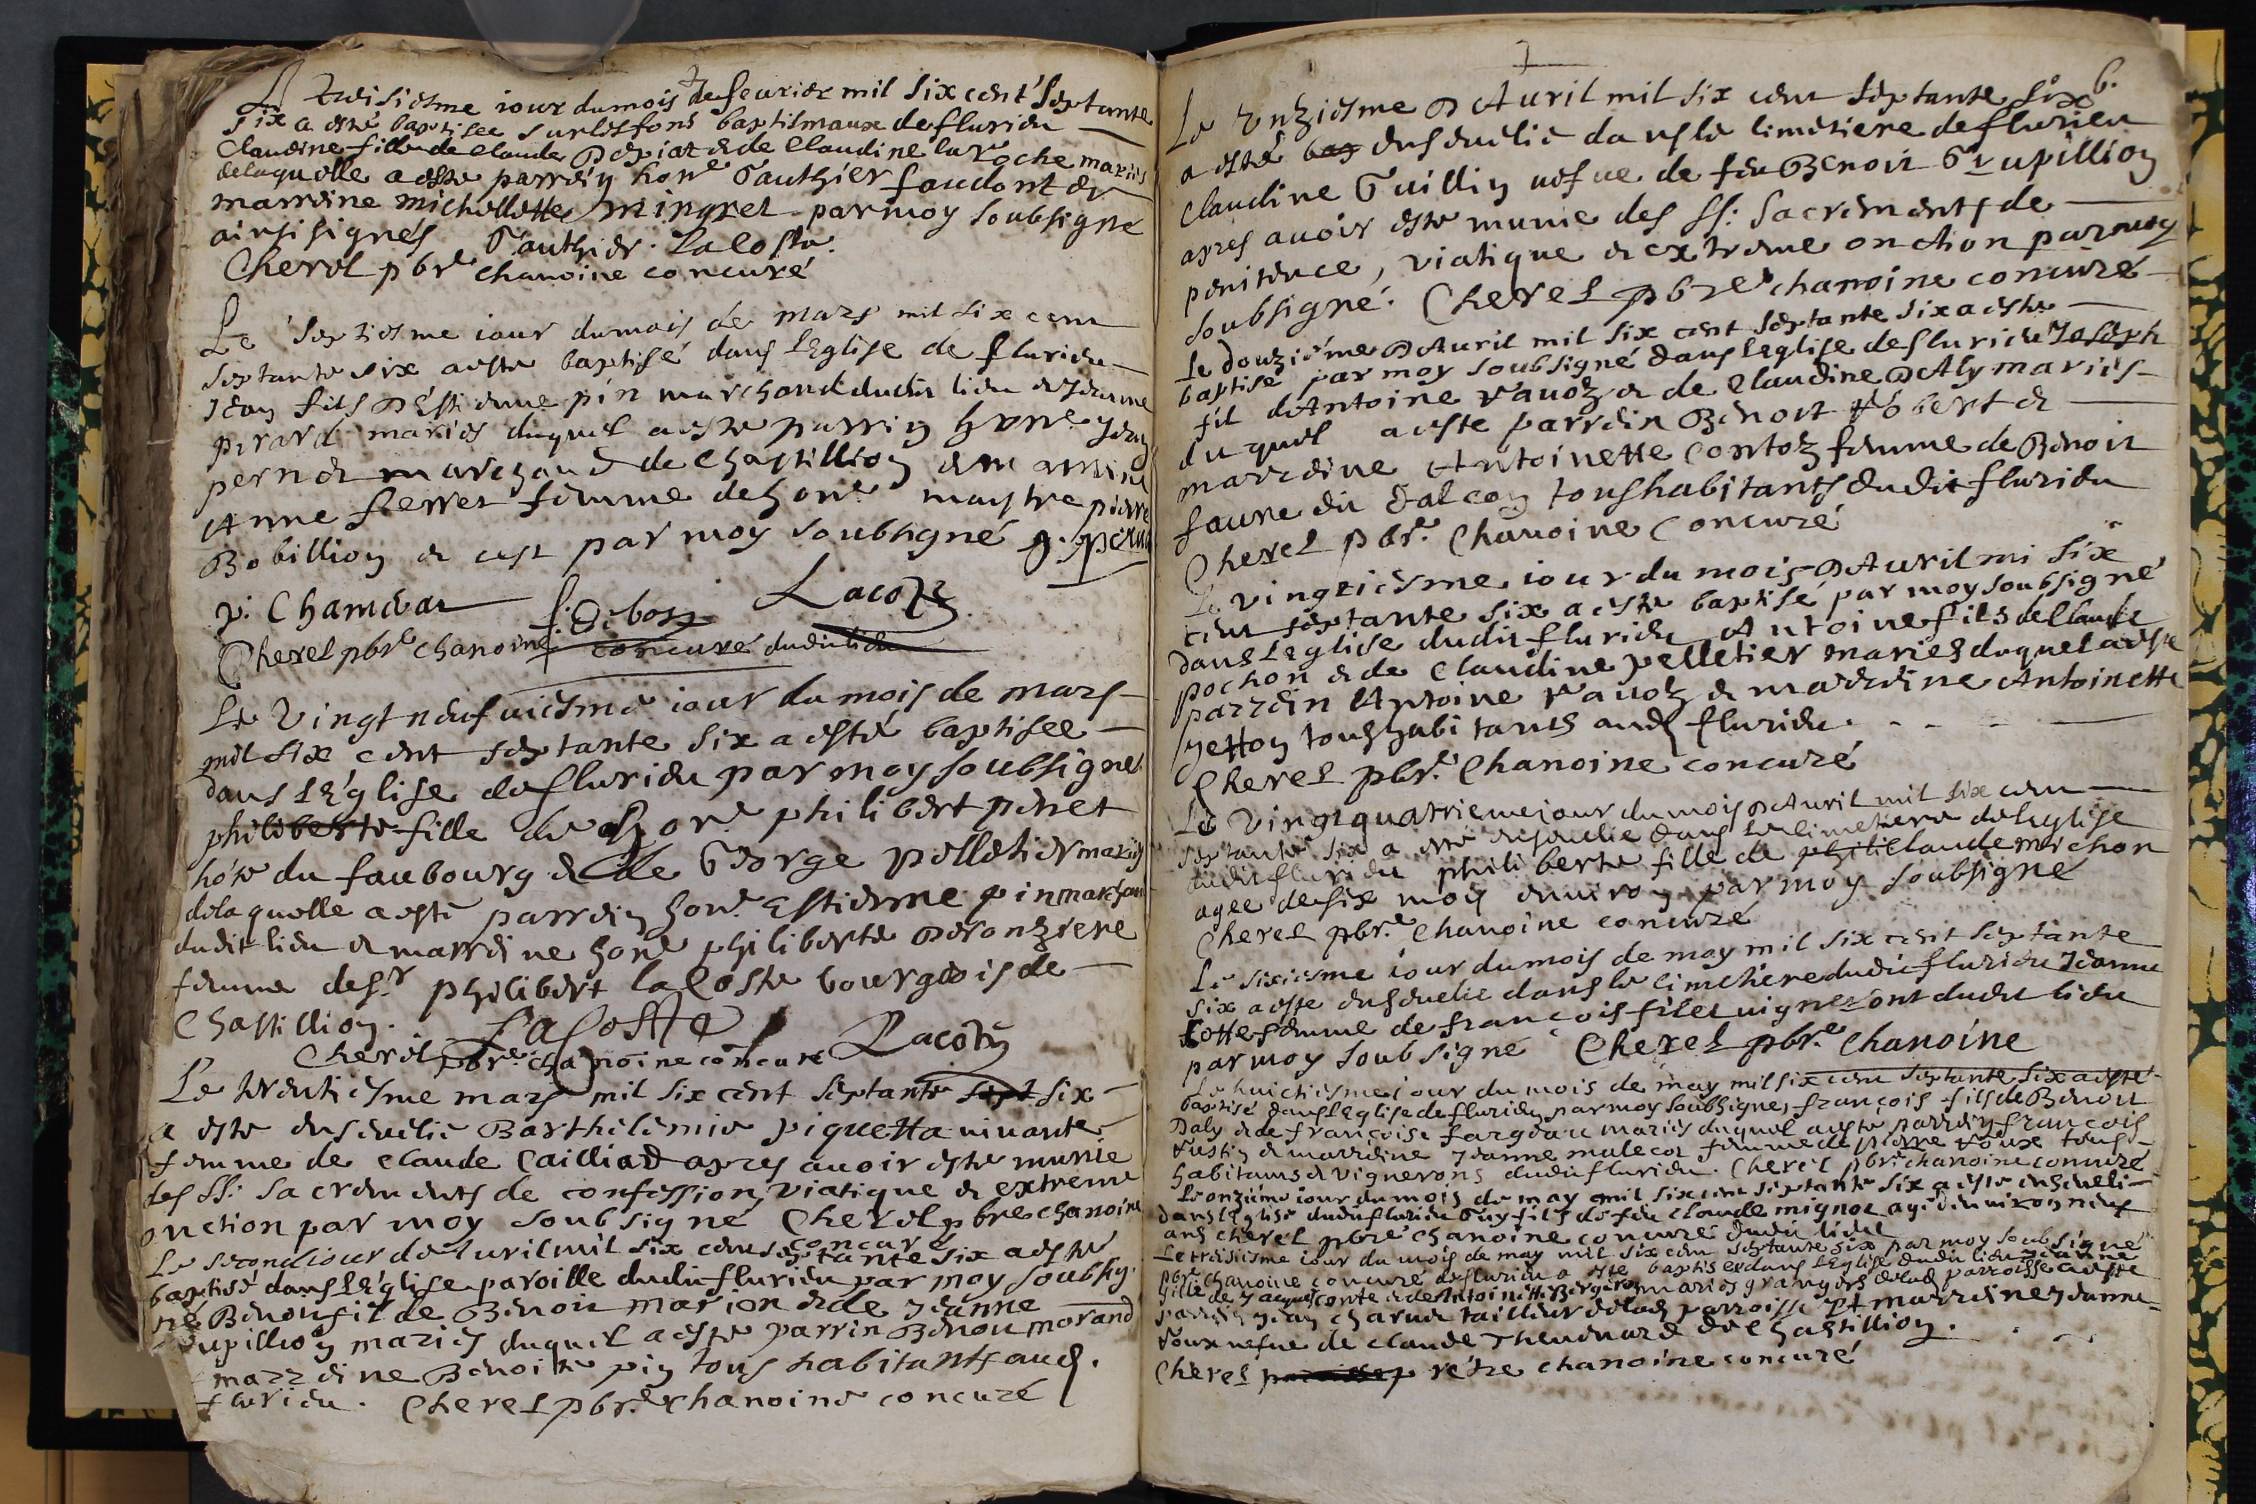 Le troisiesme iour du mois de feurier mil six cent septante
six a esté baptisee sur les fons baptismaux de flurieu
Claudine fille de Claude et de Claudine la roche mariés
de laquelle a este parrein hon.e Gauthier faudont et
marreine michellette mingret par moy soubsigné
ainsi signés Gauthier. Lacoste.
Cherel pbre chanoine concuré
Le septiesme iour du mois de mars mil six cent
septante six a esté baptisé dans l'Eglise de flurieu
Jean fils d'Estienne pin marchand dudit lieu et Jeanne
perard mariés duquel a este parrin hone Jean
pernet marchand de Chastillion et marreine
Anne ferret femme de hone maystre pierre
Bobillion et cest par moy soubsigné
v. Chamdear f. Debost Lacoste
Cherel pbre Chanoine concuré dudit lieu
Le vingt neufuiesme iour du mois de mars
mil six cent septante six a esté baptisee
dans l'Eglise de flurieu par moy soubsigné
philiberte fille de hone philibert penet
hôte du faubourg et de George pelletier mariés
de laquelle a esté parrein hone Estienne pin marchand
dudit lieu et marreine hone philiberte Deronziere
femme de sr philibert lacoste bourgeois de
Chastillion. Lacoste Lacoste
Cherel pbre chanoine concuré
Le trentiesme mars mil six cent septante sept six
a este enseuelie Barthelemie piguetta viuante
femme de Claude Cailliad apres auoir este munie
des SS: sacrements de confession, viatique et extreme
onction par moy soubsigné Cherel pbre chanoine
concuré
Le second iour d'Auril mil six cent septante six a este
baptisé dans l'Eglise paroille dudit flurieu par moy soubsig-
né Benoit fil de Benoit marion et de Jeanne
upillion mariés duquel a este parrin Benoit morand
marreine Benoite pin tous habitants aud.
flurieu. Cherel pbre chanoine concuré
6.
Le Unziesme d'Auril mil six cent septante six
a esté bap enseuelie dans le simetiere de flurieu
Claudine Guillin uefue de feu Benoit Grupillion
apres auoir esté munie des SS: Sacrements de
penitence, viatique et extreme onction par moy
soubsigné. Cherel pbre chanoine concuré
Le douziéme d'Auril mil six cent septante six a este
baptisé par moy soubsigné dans l'eglise de flurieu Joseph
fil d'Antoine rauoz et de Claudine D'Aly mariés
du quel a este parrein Benoit Robert et
marreine Antoinette Contoz femme de Benoit
faure dit dalcon tous habitants dudit flurieu
Cherel pbre. Chanoine Concuré
Le vingtiesme iour du mois d'Auril mi six
cent septante six a este baptisé par moy soubsigné
dans l'Eglise dudit flurieu Antoine fils de Claude
pochon et de Claudine pelletier mariés duquel a este
parrein Antoine rauoz et marreine Antoinette
yetton tous habitants aud. flurieu.
Cherel pbre. Chanoine concuré
Le vingt quatrieme jour du mois d'Auril mil six cent
septante six a esté enseuelie dans le simetiere de l'eglise
dudit flurieu philiberte fille de phili Claude michon
agee de six mois enuiron par moy soubsigné
Cherel pbre. Chanoine concuré
Le sixiesme iour du mois de may mil six cent septante
six a este enseuelie dans le cimetiere dudit flurieu Jeanne
Cotte femme de francois filet uigneront dudit lieu
par moy soubsigné Cherel pbre. Chanoine
Le huictiesme iour du mois de may mil six cent septante six a este
baptisé dans l'Eglise de flurieu par moy soubsigné, francois fils de Benoit
Daly et de francoise fargeau mariés duquel a este parrein francois
rustin et marreine Jeanne malecot femme de pierre roux tous
habitans et vignerons dudit flurieu. Cherel pbre chanoine concuré
Le onzieme iour du mois de may mil six cent septante six a este enseueli
dans l'Eglise dudit flurieu Guy fils de feu Claude mignot agé d'enuiron neuf
ans Cherel pbre Chanoine concuré dudit lieu
Le treisiesme iour du mois de may mil six cent septante six par moy soubsigné
pbre chanoine concuré de flurieu a este baptisee dans l'Eglise dudit lieu Jeanne
fille de Jacques Conte et de Antoinette Bergeron mariés grangers de lad parroisse a este
parrein Jean charnet tailleur de lad parroisse Et marreine Jeanne
roux uefue de claude Theuenard de Chastillion.
Cherel prétre chanoine concuré